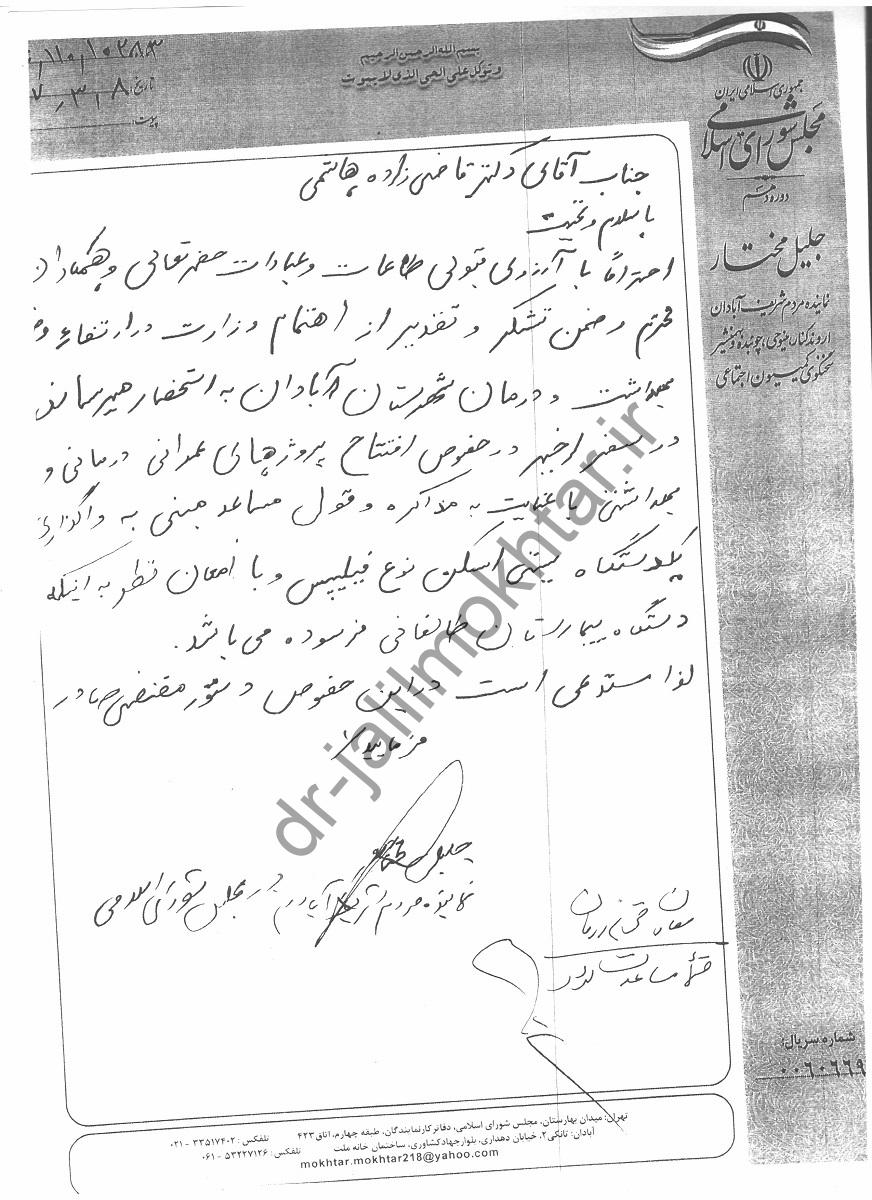 بسم الله الرحمن الرحیم
وتوکل علی الحی الذی لا یموت
جمهوری اسلامی ایران
مجلس شورای اسلامی
دوره دهم
جلیل مختار
نماینده مردم شریف آبادان
اروندکنار، مینوحی، چوئبده و بهمنشیر
سخنگوی کمیسیون اجتماعی
تاریخ:
پیوست:
جناب آقای دکتر قاضی زاده هاشمی
با سلام و تحیت
احتراماً با آرزوی قبولی طاعات و عبادات حضرتعالی و همکاران
محترم و ضمن تشکر و تقدیر از اهتمام وزارت در ارتقاء
بهداشت و درمان شهرستان آبادان به استحضار میرساند
در سفر اخیر در خصوص افتتاح پروژهای عمرانی درمانی و
بهداشتی با عنایت به مذاکره و قول مساعد مبنی به واگذاری
یکدستگاه سیتی اسکن نوع فیلیپس و با امعان نظر به اینکه
دستگاه بیمارستان طالقانی فرسوده می باشد.
لذا مستدعی است در این خصوص دستور مقتضی صادر
فرمایید
جلیل مختار
نماینده مردم شریف آبادان در مجلس شورای اسلامی
معاون محترم درمان
مساعدت
شماره سریال:
۰۰۶۰۶۶۹
تهران: میدان بهارستان، مجلس شورای اسلامی، دفاتر کار نمایندگان، طبقه چهارم، اتاق ۴۲۳ تلفکس: ۳۳۵۱۷۴۰۲ - ۰۲۱
آبادان: تانکی۲، خیابان دهداری، بلوار جهاد کشاورزی، ساختمان خانه ملت تلفکس: ۵۳۲۲۷۱۲۶ - ۰۶۱
mokhtar.mokhtar218@yahoo.com
dr-jalilmokhtar.ir